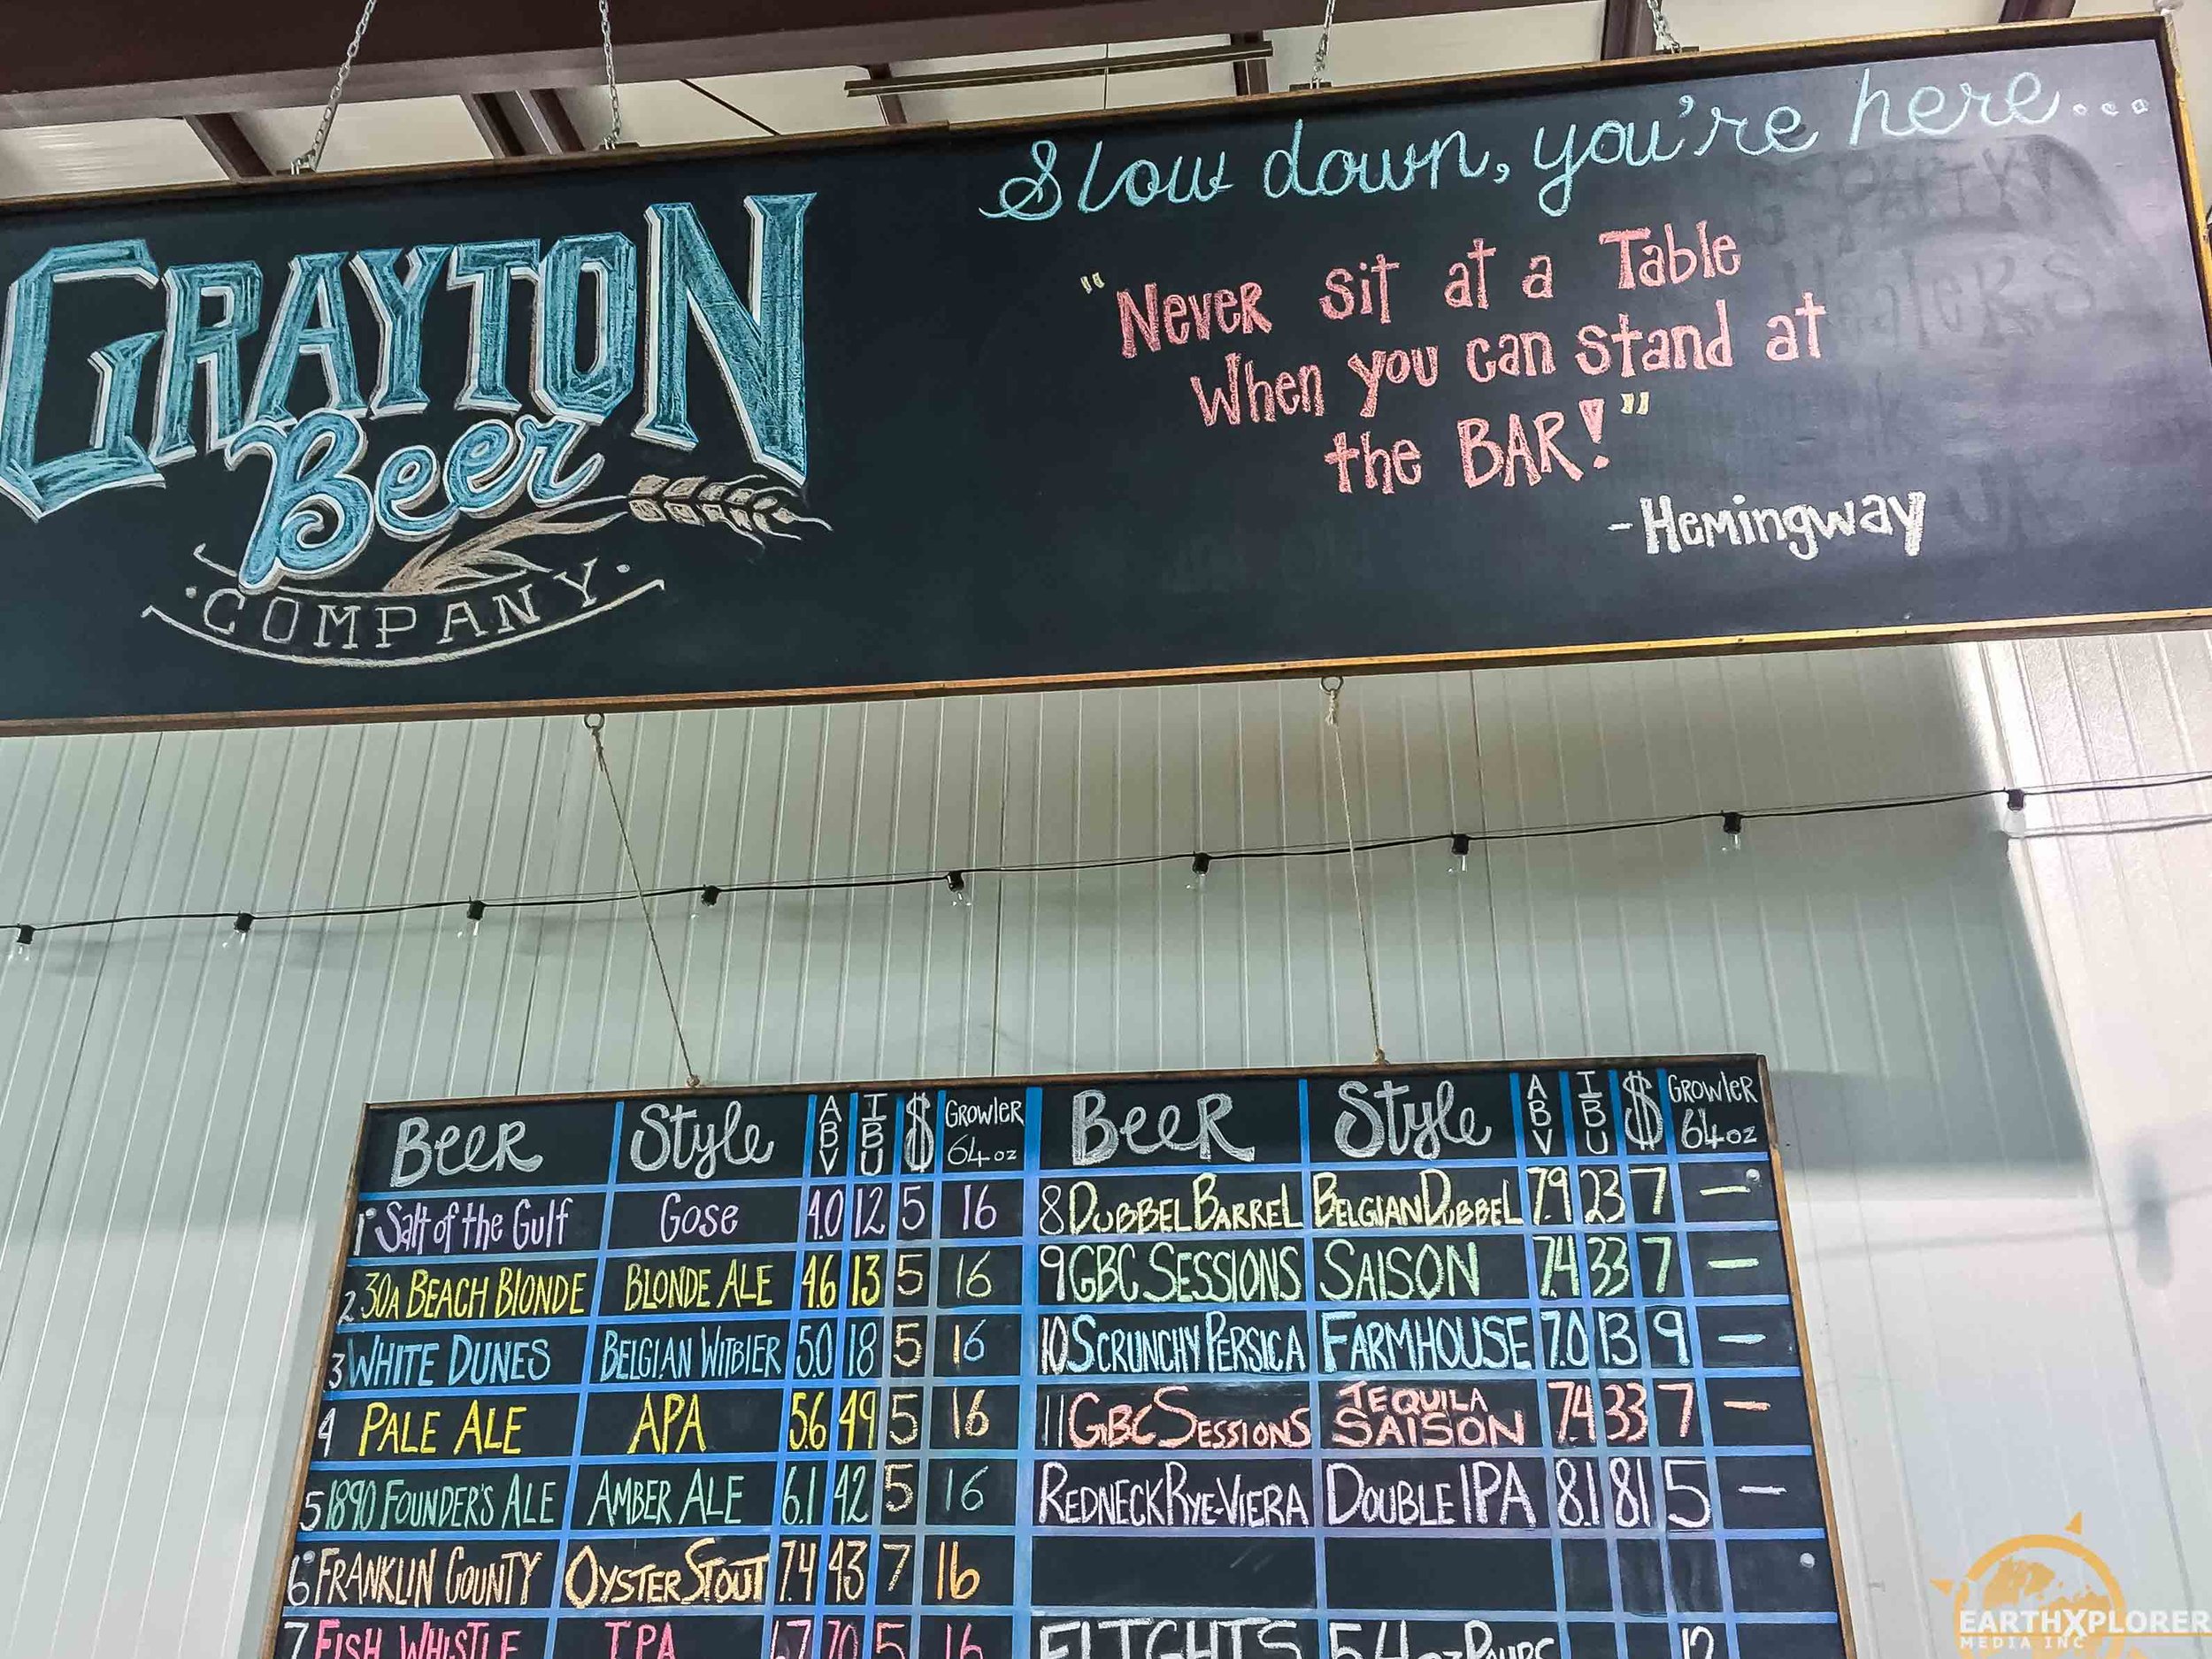 GRAYTON
Beer
COMPANY
Slow down, you're here...
"Never sit at a Table
When you can stand at
the BAR!"
-Hemingway
Beer Style ABV IBU $ Growler 64oz Beer Style ABV IBU $ Growler 64oz
1 Salt of the Gulf Gose 4.0 12 5 16 8 Dubbel Barrel Belgian Dubbel 7.9 23 7 —
2 30A Beach Blonde Blonde Ale 4.6 13 5 16 9 GBC Sessions Saison 7.4 33 7 —
3 White Dunes Belgian Witbier 5.0 18 5 16 10 Scrunchy Persica Farmhouse 7.0 13 9 —
4 Pale Ale APA 5.6 49 5 16 11 GBC Sessions Tequila Saison 7.4 33 7 —
5 1890 Founder's Ale Amber Ale 6.1 42 5 16 Redneck Rye-Viera Double IPA 8.1 81 5 —
6 Franklin County Oyster Stout 7.4 43 7 16
7 Fish Whistle IPA 6.7 70 5 16 FLIGHTS 5 4oz Pours 12
EARTHXPLORER
MEDIA INC